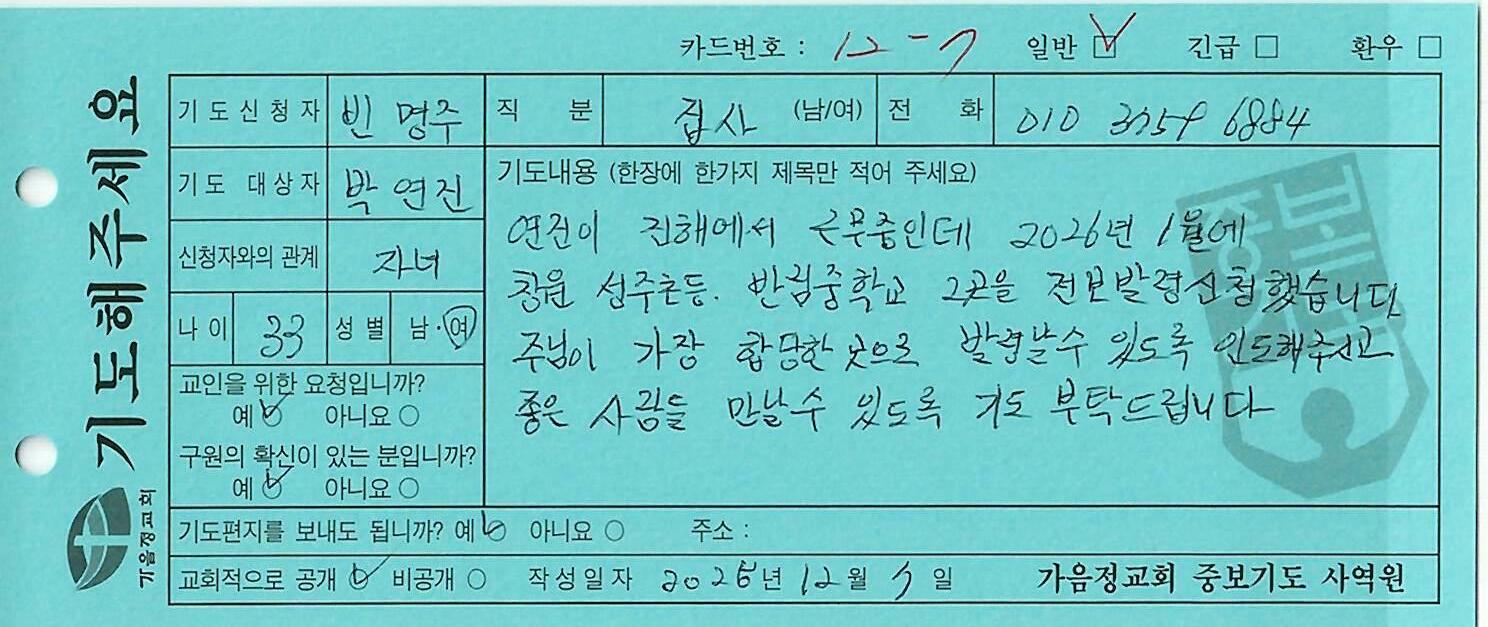 카드번호 : 12-7 일반 ☑ 긴급 □ 환우 □
기도해주세요
가음정교회
기도신청자 빈명주 직분 집사 (남/여) 전화 010 3759 6884
기도 대상자 박연진
신청자와의 관계 자녀
나이 33 성별 남·여
교인을 위한 요청입니까?
예 ✓ 아니요 ○
구원의 확신이 있는 분입니까?
예 ✓ 아니요 ○
기도내용 (한장에 한가지 제목만 적어 주세요)
연진이 진해에서 근무중인데 2026년 1월에
창원 성주초등. 반림중학교 2곳을 전보발령신청했습니다
주님이 가장 합당한 곳으로 발령날수 있도록 인도해주시고
좋은 사람들 만날수 있도록 기도 부탁드립니다
중보기도
기도편지를 보내도 됩니까? 예 ✓ 아니요 ○ 주소 :
교회적으로 공개 ✓ 비공개 ○ 작성일자 2025년 12월 7일 가음정교회 중보기도 사역원